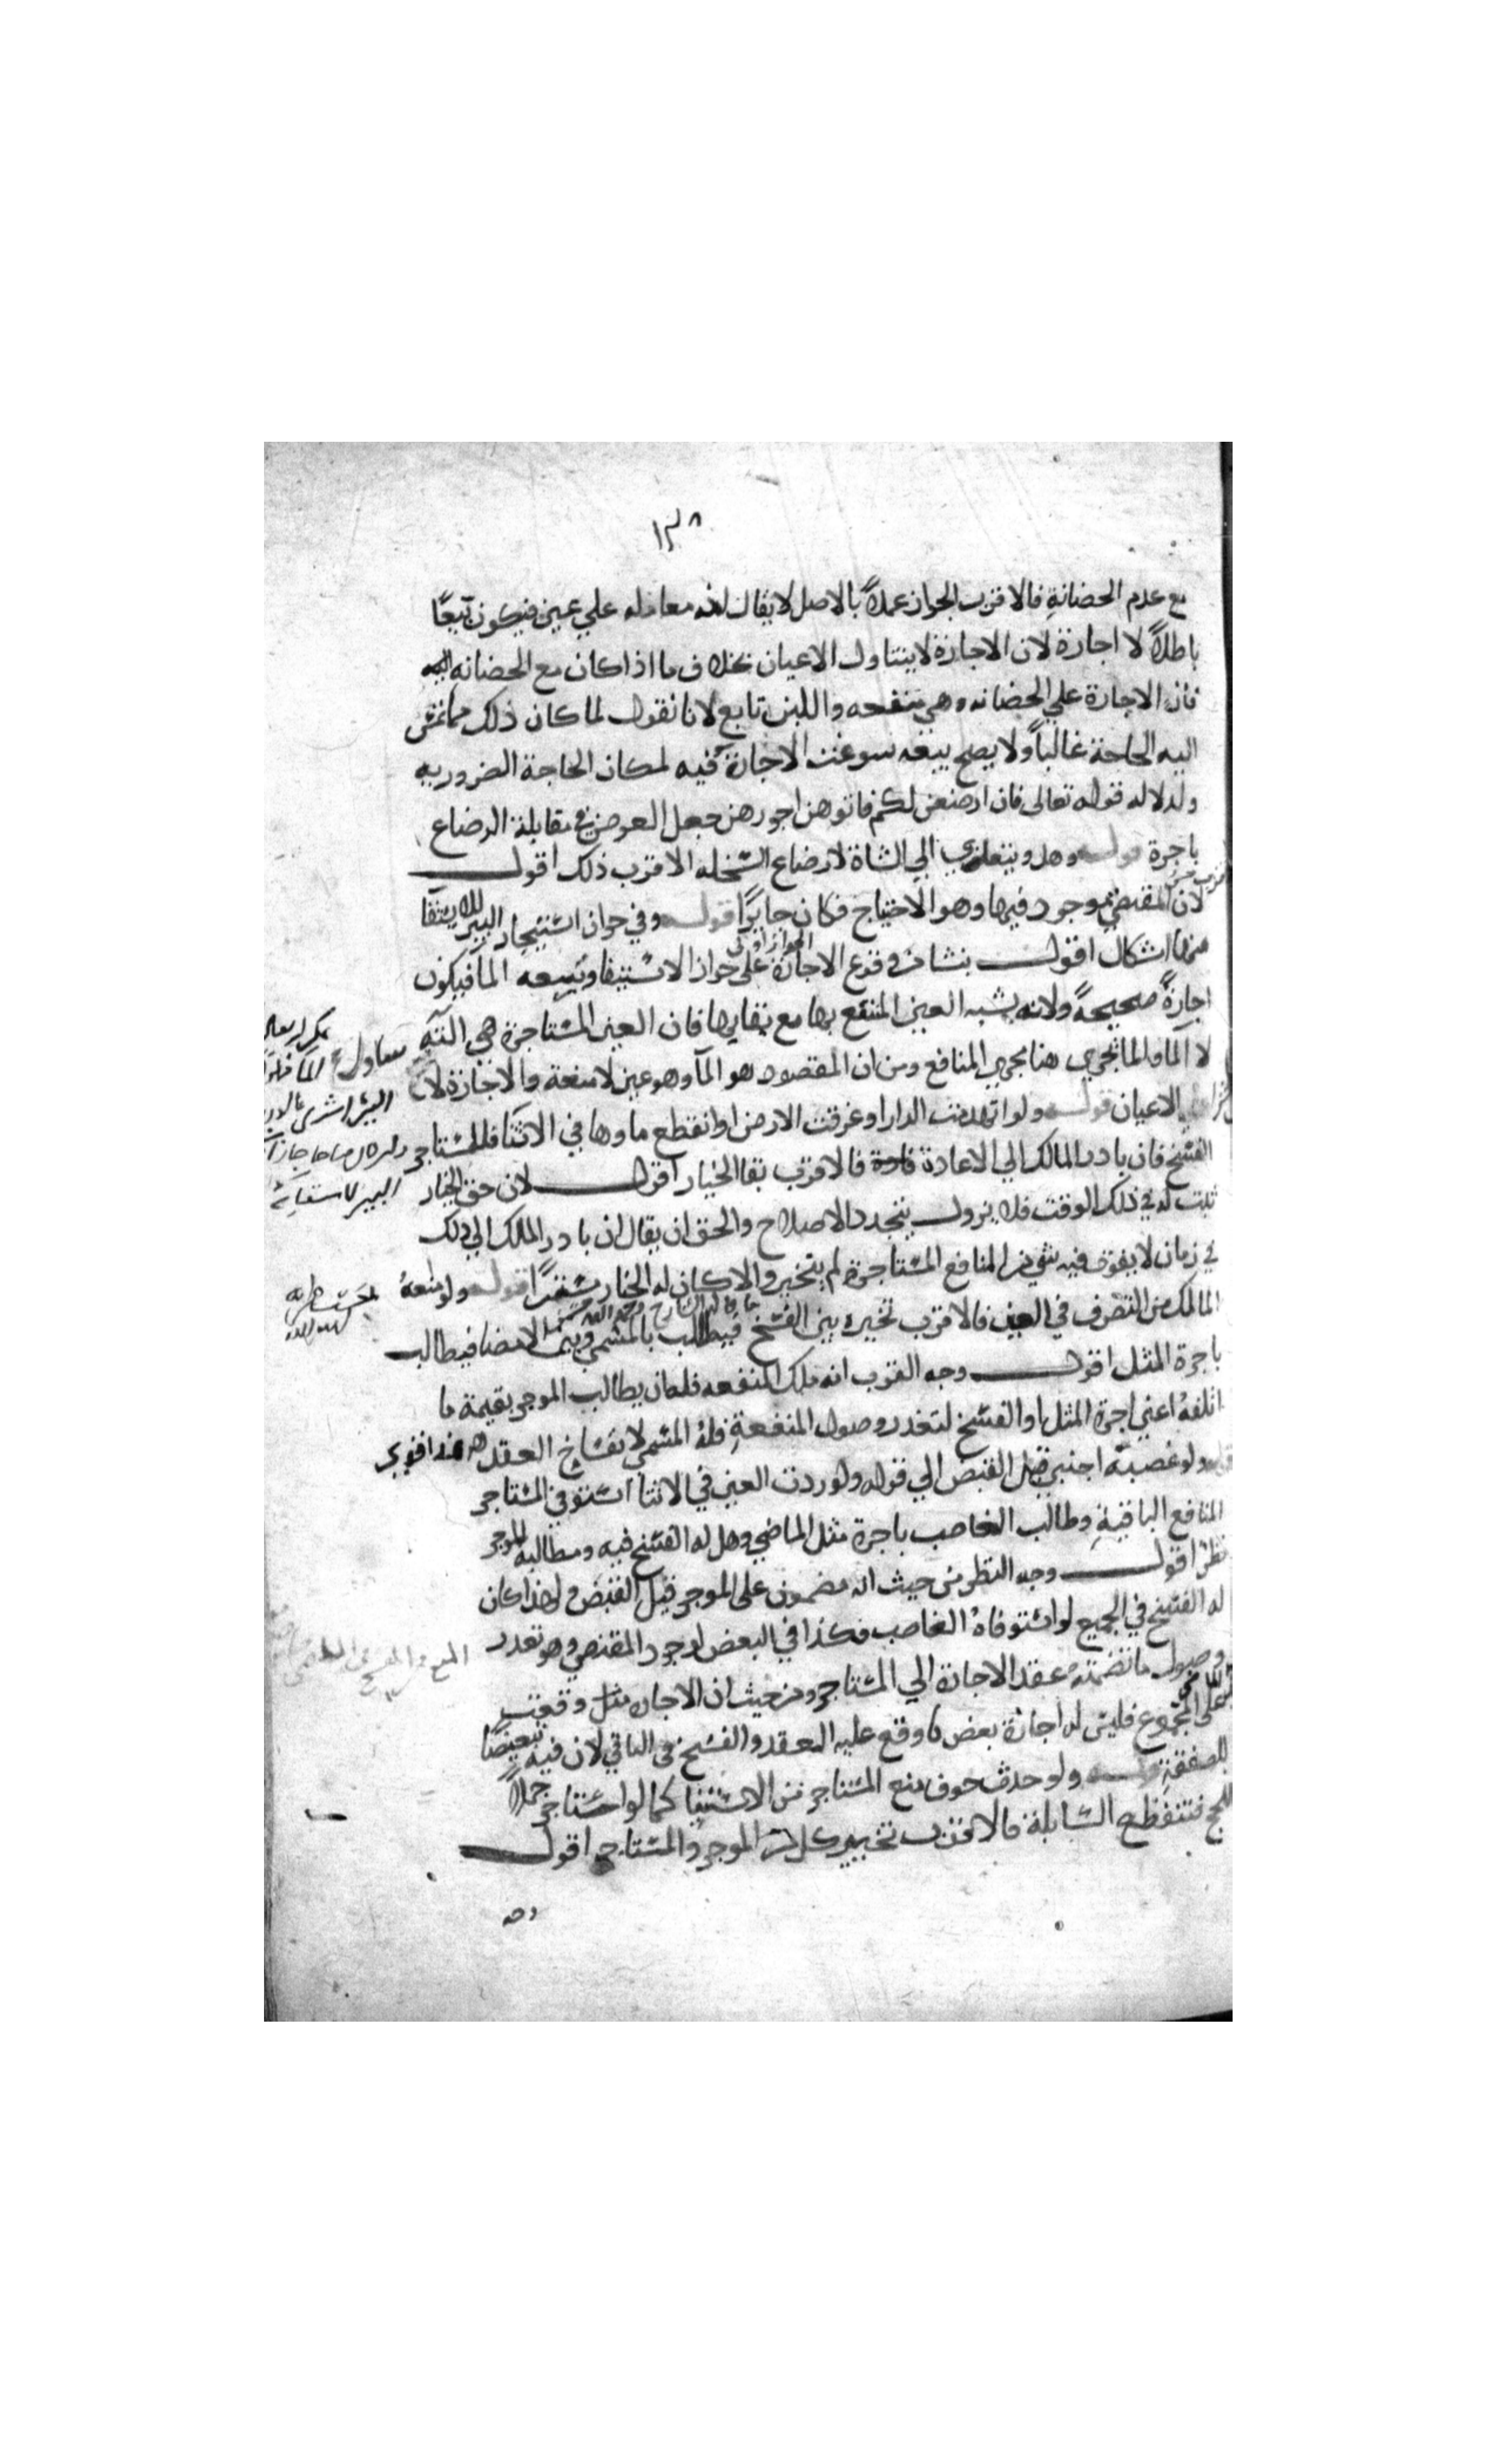 ١٣٨
مع عدم الحضانة فالاقرب الجواز عملاً بالاصل لا يقال انه معامله علي عين فيكون بيعًا
باطلاً لا اجارة لان الاجارة لا يتناول الاعيان بخلاف ما اذا كان مع الحضانه
فان الاجارة علي الحضانه وهي منفعه واللبن تابع لانا نقول لما كان ذلك مما تمس
اليه الحاجة غالباً ولا يصح بيعه سوغت الاجارة فيه لمكان الحاجة الضروريه
ولدلاله قوله تعالى فان ارضعن لكم فاتوهن اجورهن جعل العوض في مقابلة الرضاع
باجرة قوله وهل ويتعدي الي الشاة لارضاع السخله الاقرب ذلك اقول
لان المقتضي موجود فيها وهو الاحتياج فكان جايزًا قوله وفي جواز استيجار البير للاستقآ
منها اشكال اقول ينشا من وقوع الاجارة على جواز الاستيفا ويتبعه المآ فيكون
الجواز اولى
اجارةً صحيحةً ولانه يشبه العين المنتفع بها مع بقايها فان العين المستاجرة هي البير
لا المآ والما يجري هنا مجري المنافع ومن ان المقصود هو المآ وهو عين لا منفعة والاجارة لا
الاعيان قوله ولو انهدمت الدار او غرقت الارض او انقطع ماوها في الاثنآ فللمستاجر
الفسخ فان بادر المالك الي الاعادة فالاقرب بقا الخيار اقول لان حق الخيار
ثبت له في ذلك الوقت فلا يزول بتجدد الاصلاح والحق ان يقال ان بادر المالك الي ذلك
في زمان لا يفوت فيه شي من المنافع المستاجرة لم يتخير والا كان له الخيار مستمرًا قوله ولو منعه
المالك من التصرف في العين فالاقرب تخيره بين الفسخ فيطالب بالمسمي وبين الامضا فيطالب
باجرة المثل اقول وجه القرب انه ملك المنفعه فله ان يطالب الموجر بقيمة ما
اتلفهُ اعني اجرة المثل او الفسخ لتعذر وصول المنفعةِ فلهُ المسمي لانفساخ العقد
قوله ولو غصبه اجنبي قبل القبض الي قوله ولو ردت العين في الاثنا استوفي المستاجر
المنافع الباقيةِ وطالب الغاصب باجرة مثل الماضي وهل له الفسخ فيه ومطالبه الموجر
نظرٌ اقول وجه النظر من حيث انه مضمون على الموجر قبل القبض ولهذا كان
له الفسخ في الجميع لو استوفاهُ الغاصب فكذا في البعض لوجود المقتضي وهو تعذر
وصول ما تضمنهُ عقد الاجارة الي المستاجر ومن حيث ان الاجاره مثل وقعت
على المجموع فليس له اجازة بعض ما وقع عليه العقد والفسخ في الباقي لان فيه تبعيضًا
للصفقةِ قوله ولو حدث خوف منع المستاجر من الاستيفا كما لو استاجر جملاً
للحج فتنقطع السابلة فالاقرب تخيير كل من الموجر والمستاجر اقول
وجه